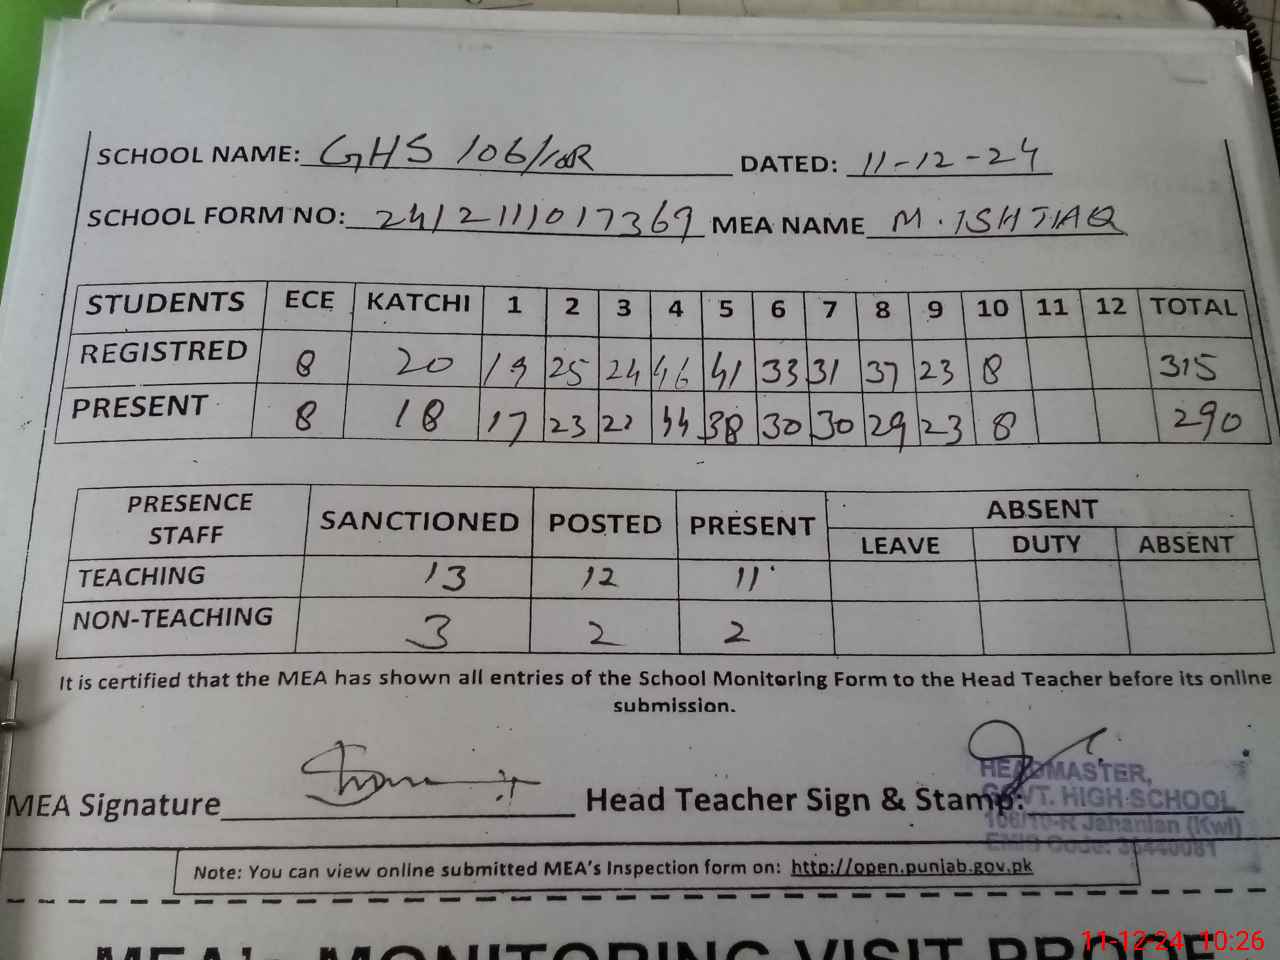 SCHOOL NAME: GHS 106/10R DATED: 11-12-24
SCHOOL FORM NO: 2412111017369 MEA NAME M. ISHTIAQ
STUDENTS ECE KATCHI 1 2 3 4 5 6 7 8 9 10 11 12 TOTAL
REGISTRED 8 20 19 25 24 46 41 33 31 37 23 8 315
PRESENT 8 18 17 23 22 44 38 30 30 29 23 8 290
PRESENCE STAFF SANCTIONED POSTED PRESENT ABSENT
LEAVE DUTY ABSENT
TEACHING 13 12 11
NON-TEACHING 3 2 2
It is certified that the MEA has shown all entries of the School Monitoring Form to the Head Teacher before its online
submission.
MEA Signature Head Teacher Sign & Stamp:
HEADMASTER,
GOVT. HIGH SCHOOL
106/10-R Jahanian (Kwl)
EMIS Code: 36440081
Note: You can view online submitted MEA's Inspection form on: http://open.punjab.gov.pk
MEA's MONITORING VISIT PROOF
11-12-24 10:26